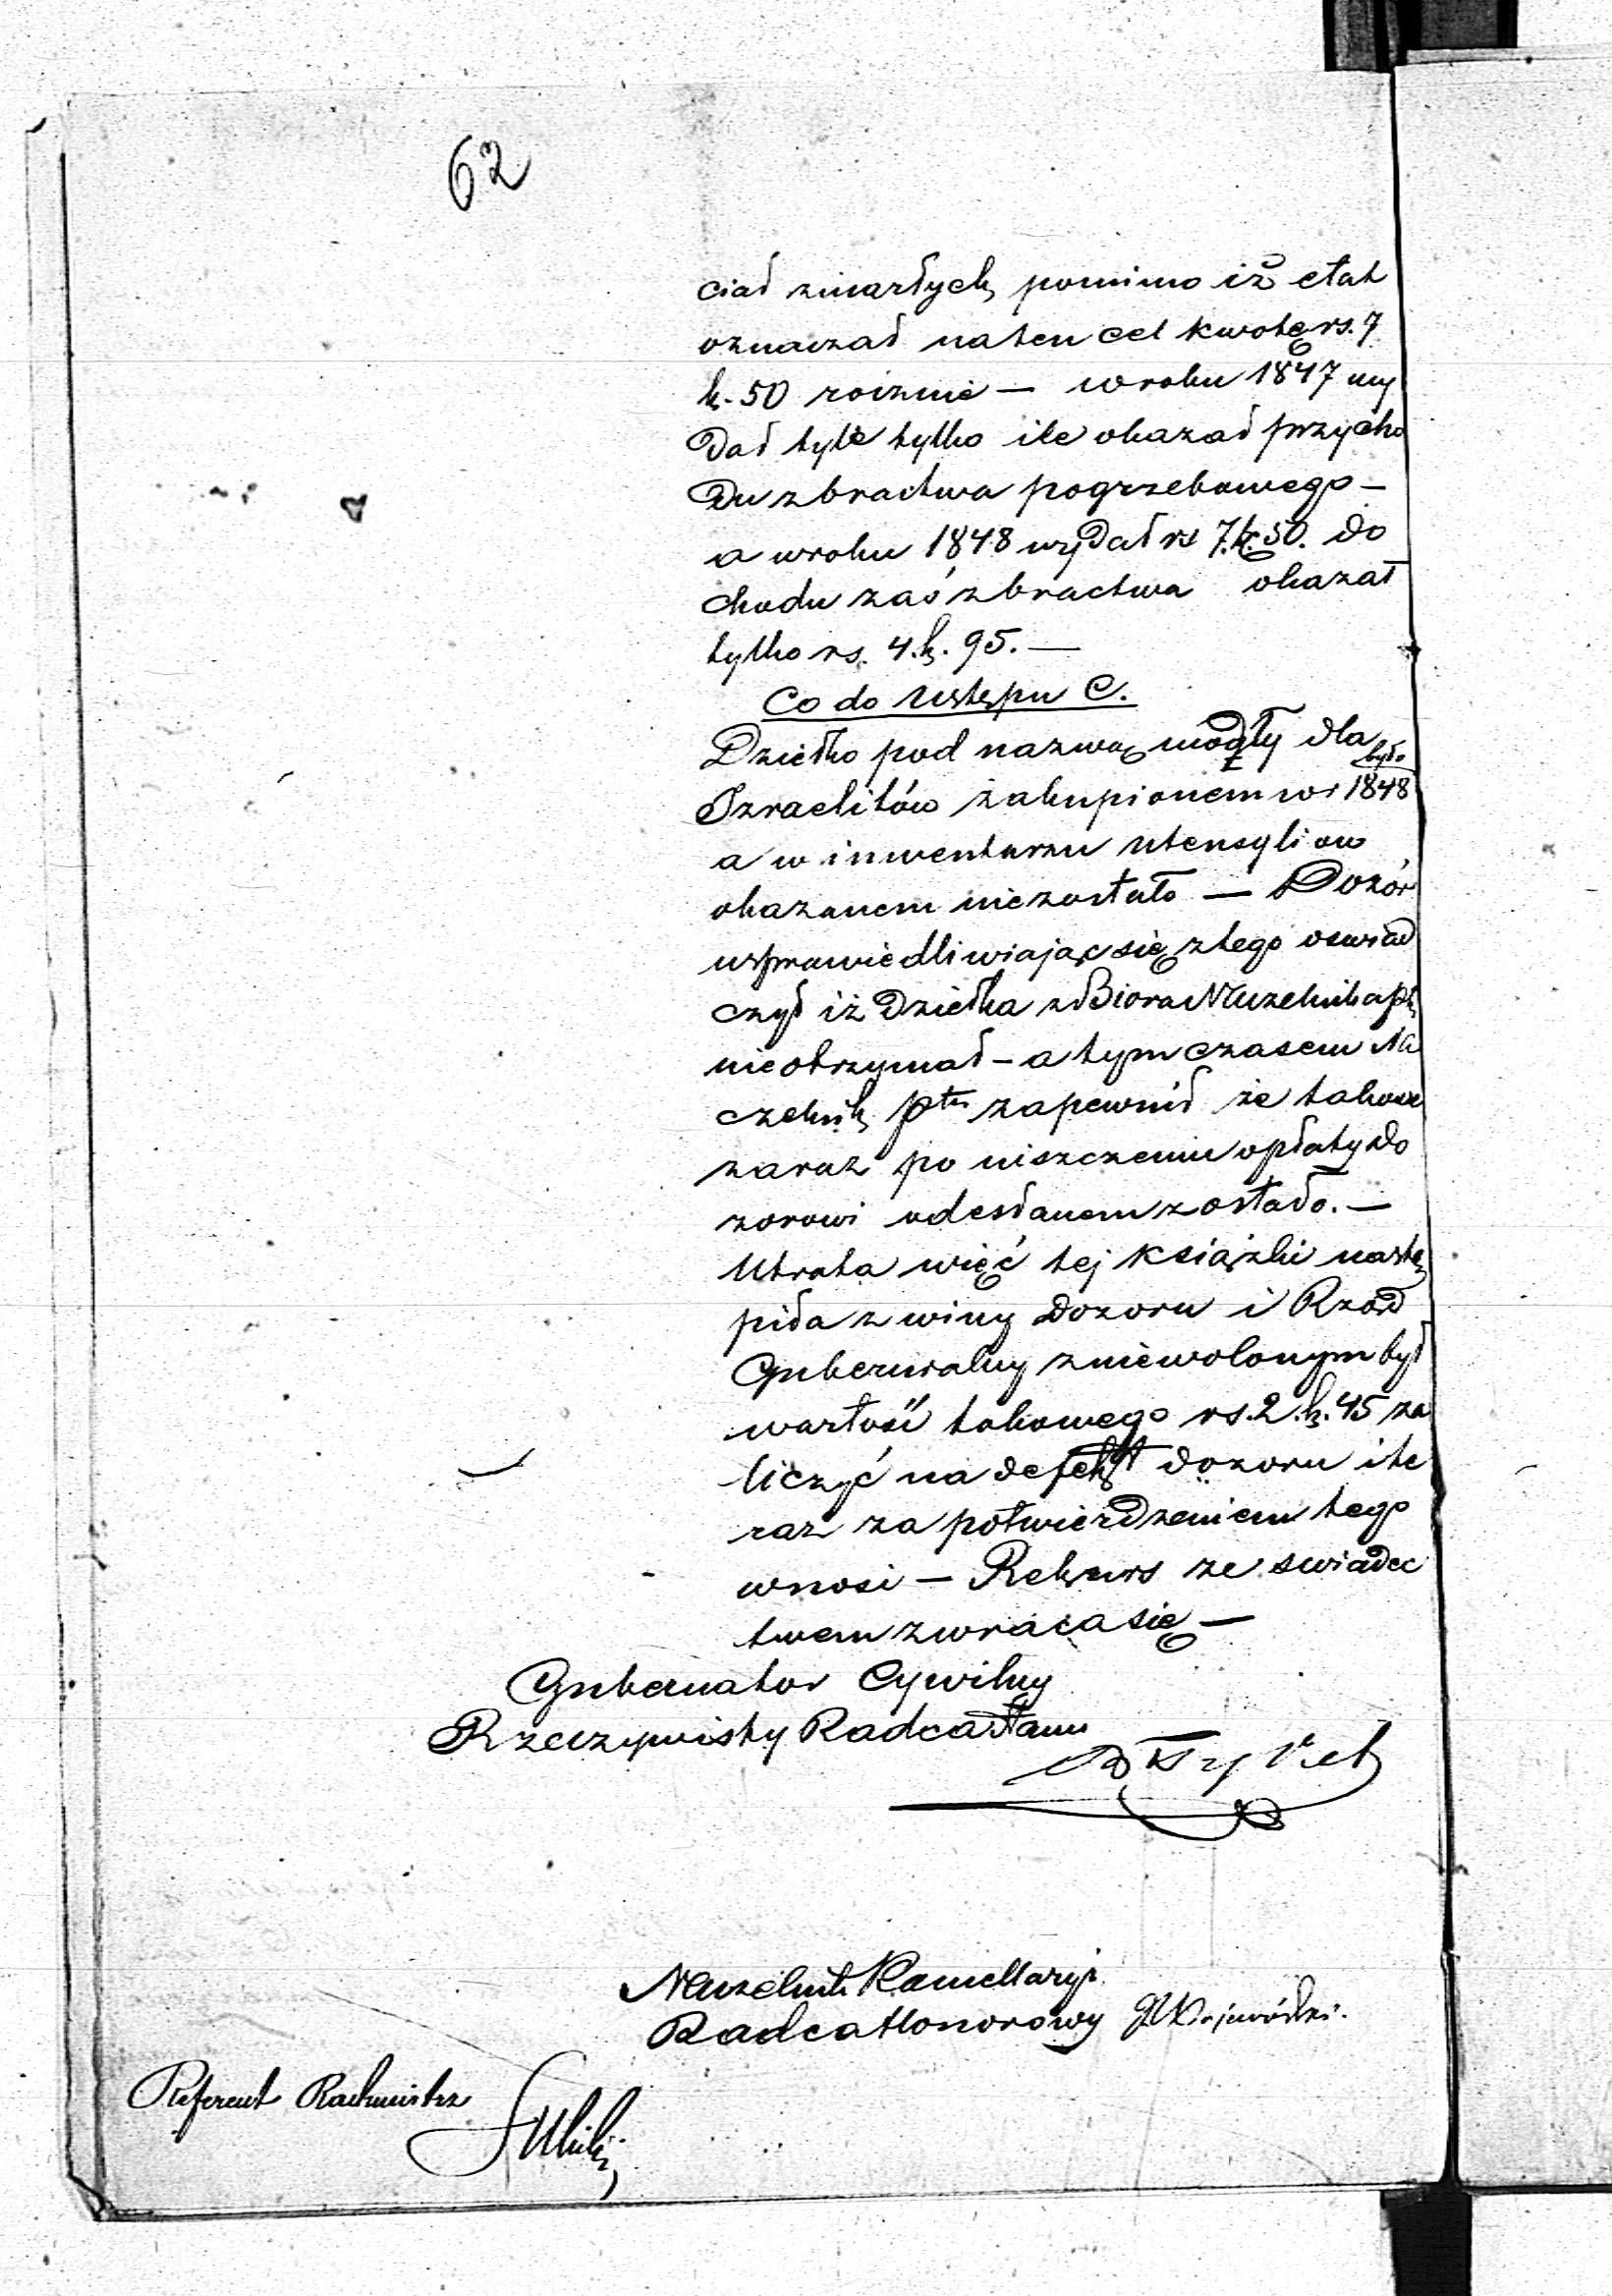 62
ciał zmarłych pomimo iż etat
oznaczał na ten cel kwotę rs. 7
k. 50 rocznie — w roku 1847 wy
dał tyle tylko ile okazał przycho
du z bractwa pogrzebowego —
a w roku 1848 wydał rs 7. k. 50. do
chodu zaś z bractwa okazał
tylko rs. 4. k. 95. —
Co do Ustępu C.
Dziełko pod nazwą modły dla
było
Izraelitów zakupionem w r 1848
a w inwentarzu utensyliow
okazanem nie zostało — Dozór
usprawiedliwiając się z tego oswiad
czył iż dziełka z Biora Naczelnika ptu
nie otrzymał — a tymczasem Na
czelnik ptu zapewnił że takowe
zaraz po uiszczeniu opłaty do
zorowi odesłanem zostało. —
Utrata więc tej książki nastę
piła z winy dozoru i Rząd
Gubernialny zniewolonym był
wartość takowego rs. 2. k. 45 za
liczyć na defekt dozoru i te
raz za potwierdzeniem tego
wnosi — Rekurs ze swiadec
twem zwraca się —
Gubernator Cywilny
Rzeczywisty Radca Stanu
Naczelnik Kancellaryi
Radca Honorowy
Referent Rachmistrz